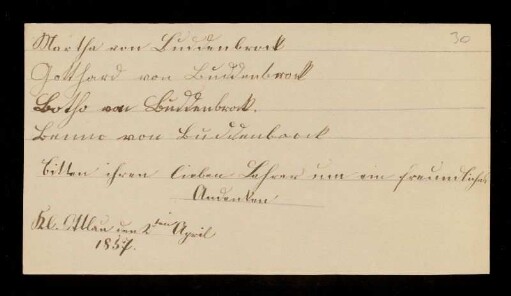 30
Martha von Buddenbrock
Gotthard von Buddenbrock
Botho von Buddenbrock.
Benno von Buddenbrock
bitten ihren lieben Lehrer um ein freundliches
Andenken
Kl. Ottlau den 2ten April
1857.